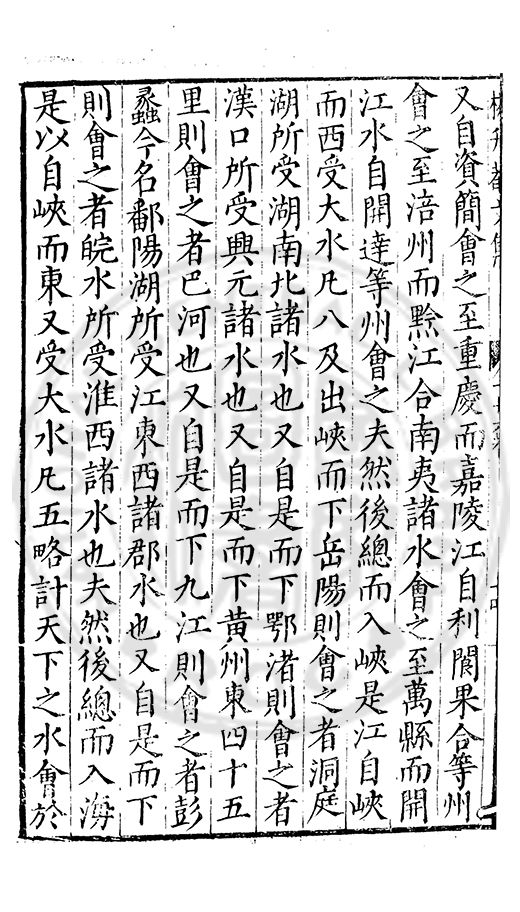 又自資簡會之至重慶而嘉陵江自利閬果合等州
會之至涪州而黔江合南夷諸水會之至萬縣而開
江水自開達等州會之夫然後總而入峽是江自峽
而西受大水凡八及出峽而下岳陽則會之者洞庭
湖所受湖南北諸水也又自是而下鄂渚則會之者
漢口所受興元諸水也又自是而下黄州東四十五
里則會之者巴河也又自是而下九江則會之者彭
蠡今名鄱陽湖所受江東西諸郡水也又自是而下
則會之者皖水所受淮西諸水也夫然後總而入海
是以自峽而東又受大水凡五略計天下之水會於